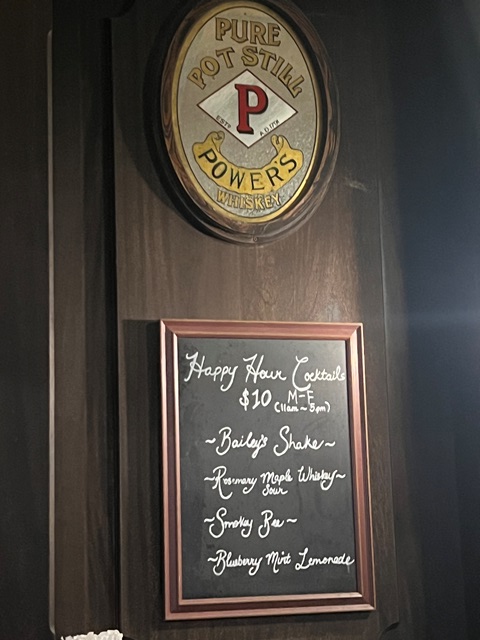 PURE
POT STILL
P
ESTD A.D.1791
POWER'S
WHISKEY
Happy Hour Cocktails
$10 M-F
(11am~5pm)
~Bailey's Shake~
~Rosemary Maple Whiskey~
Sour
~Smokey Bee~
~Blueberry Mint Lemonade